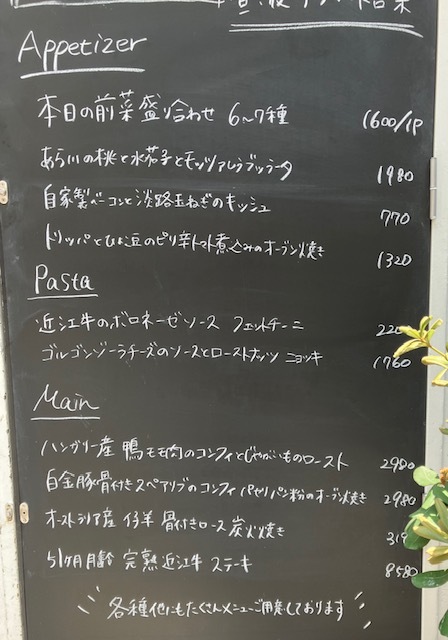 Appetizer
本日の前菜盛り合わせ 6〜7種 1600/1P
あら川の桃と水茄子とモッツァレラブッラータ 1980
自家製ベーコンと淡路玉ねぎのキッシュ 770
トリッパとひよこ豆のピリ辛トマト煮込みのオーブン焼き 1320
Pasta
近江牛のボロネーゼソース フェットチーニ 220
ゴルゴンゾーラチーズのソースとローストナッツ ニョッキ 1760
Main
ハンガリー産 鴨モモ肉のコンフィとじゃがいものロースト 2980
白金豚骨付きスペアリブのコンフィ パセリパン粉のオーブン焼き 2980
オーストラリア産 仔羊 骨付きロース 炭火焼き 319
51ヶ月月齢 完熟近江牛 ステーキ 8580
各種他にもたくさんメニューご用意しております